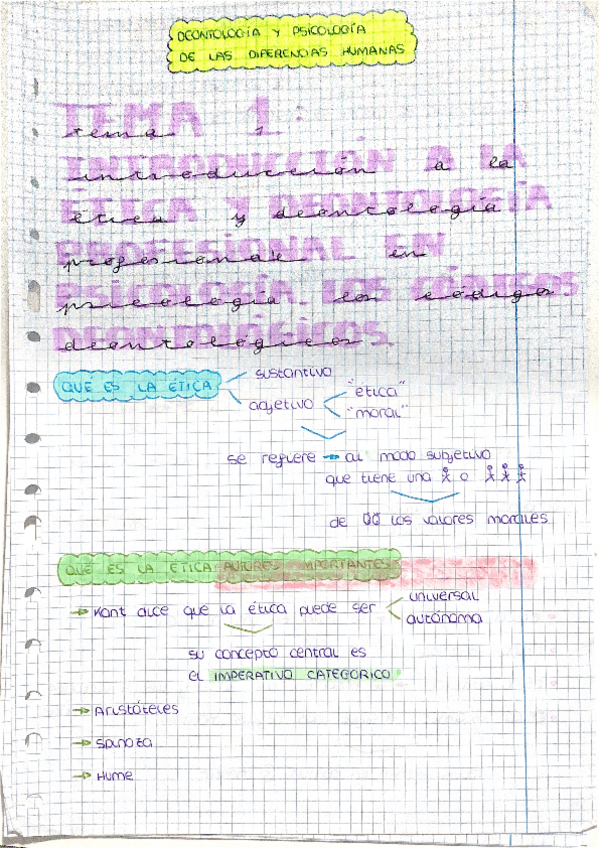 DEONTOLOGÍA Y PSICOLOGÍA
DE LAS DIFERENCIAS HUMANAS
TEMA 1:
INTRODUCCIÓN A LA
ÉTICA Y DEONTOLOGÍA
PROFESIONAL EN
PSICOLOGÍA. LOS CÓDIGOS
DEONTOLÓGICOS.
QUÉ ES LA ÉTICA
sustantivo
adjetivo
"ética"
"moral"
se refiere al modo subjetivo
que tiene una o
de los valores morales
QUÉ ES LA ÉTICA AUTORES IMPORTANTES
Kant dice que la ética puede ser
universal
autónoma
su concepto central es
el IMPERATIVO CATEGORICO
Aristóteles
Spinoza
Hume